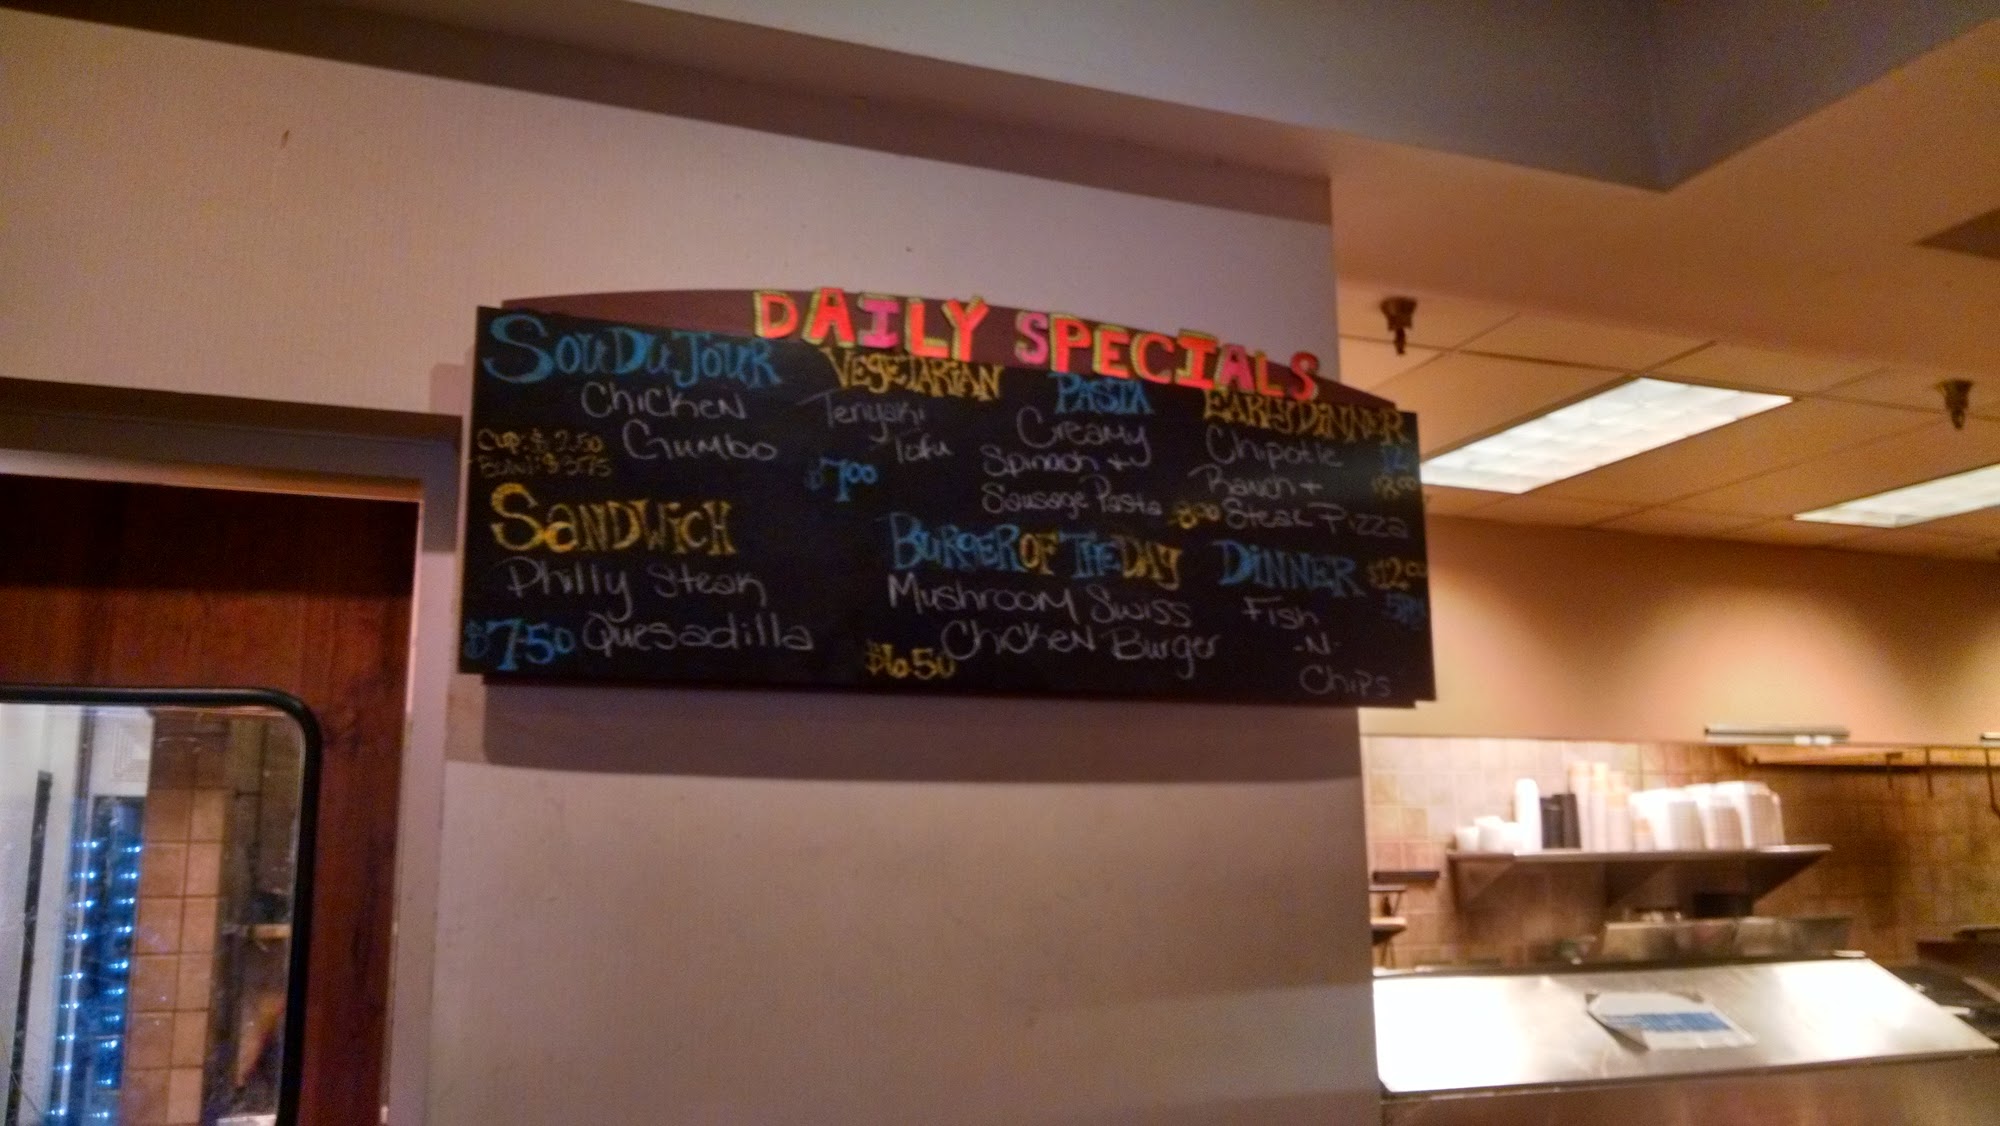 DAILY SPECIALS
SOUDUJOUR
Chicken
Gumbo
Cup: $2.50
Bowl: $3.75
VEGETARIAN
Teriyaki
Tofu
$7.00
PASTA
Creamy
Spinach +
Sausage Pasta
8.00
EARLY DINNER
Chipotle
Ranch +
Steak Pizza
SANDWICH
Philly Steak
Quesadilla
$7.50
BURGER OF THE DAY
Mushroom Swiss
Chicken Burger
$6.50
DINNER $12.00
5PM
Fish
-N-
Chips